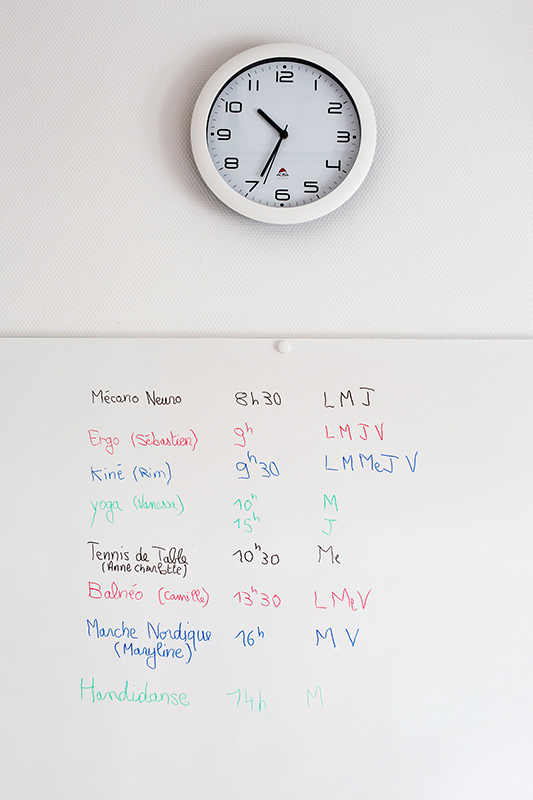 12
1
2
3
4
5
6
7
8
9
10
11
Mécano Neuro 8h30 L M J
Ergo (Sébastien) 9h L M J V
Kiné (Rim) 9h30 L M Me J V
yoga (Vanessa) 10h M
15h J
Tennis de Table 10h30 Me
(Anne charlotte)
Balnéo (Camille) 13h30 L Me V
Marche Nordique 16h M V
(Maryline)
Handidanse 14h M